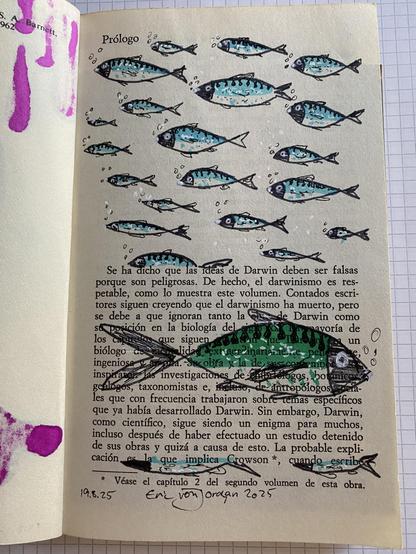 S. A. Barnett.
1962
Prólogo
Se ha dicho que las ideas de Darwin deben ser falsas
porque son peligrosas. De hecho, el darwinismo es res-
petable, como lo muestra este volumen. Contados escri-
tores siguen creyendo que el darwinismo ha muerto, pero
se debe a que ignoran tanto la de Darwin como
su posición en la biología del mayoría de
los que siguen un
biólogo
ingeniosa y la de
las investigaciones de botánicos,
geólogos, taxonomistas e, incluso, de antropólogos
les que con frecuencia trabajaron sobre temas específicos
que ya había desarrollado Darwin. Sin embargo, Darwin,
como científico, sigue siendo un enigma para muchos,
incluso después de haber efectuado un estudio detenido
de sus obras y quizá a causa de esto. La probable expli-
cación es la que implica Crowson *, cuando escribe
* Véase el capítulo 2 del segundo volumen de esta obra.
19.8.25 Eric von Jordan 2025